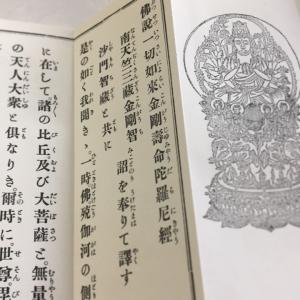 佛說一切如來金剛壽命陀羅尼經
南天竺三藏金剛智 詔を奉りて譯す
沙門智藏と共に
是の如く我聞きゝ。時佛殑伽河の側
に在して諸の比丘及大菩薩と。無量
の天人大衆と倶なりき。爾時に。世尊。毘